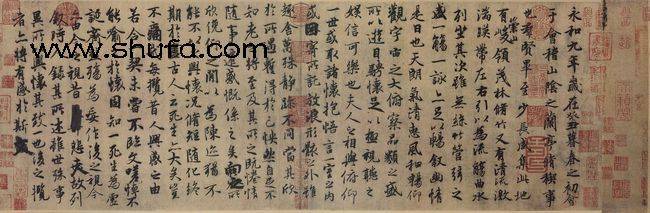 www.shufa.com
永和九年歲在癸丑暮春之初會
于會稽山陰之蘭亭脩禊事
也群賢畢至少長咸集此地
有崇山峻領茂林脩竹又有清流激
湍暎帶左右引以為流觴曲水
列坐其次雖無絲竹管弦之
盛一觴一詠亦足以暢敘幽情
是日也天朗氣清惠風和暢仰
觀宇宙之大俯察品類之盛
所以遊目騁懷足以極視聽之
娛信可樂也夫人之相與俯仰
一世或取諸懷抱悟言一室之內
或因寄所託放浪形骸之外雖
趣舍萬殊靜躁不同當其欣
於所遇暫得於己怏然自足不
知老之將至及其所之既惓情
隨事遷感慨係之矣向之所
欣俛仰之間以為陳迹猶不
能不以之興懷況脩短隨化終
期於盡古人云死生亦大矣豈
不痛哉每攬昔人興感之由
若合一契未嘗不臨文嗟悼不
能喻之於懷固知一死生為虛
誕齊彭殤為妄作後之視今
亦由今之視昔悲夫故列
敘時人錄其所述雖世殊事
異所以興懷其致一也後之攬
者亦將有感於斯文